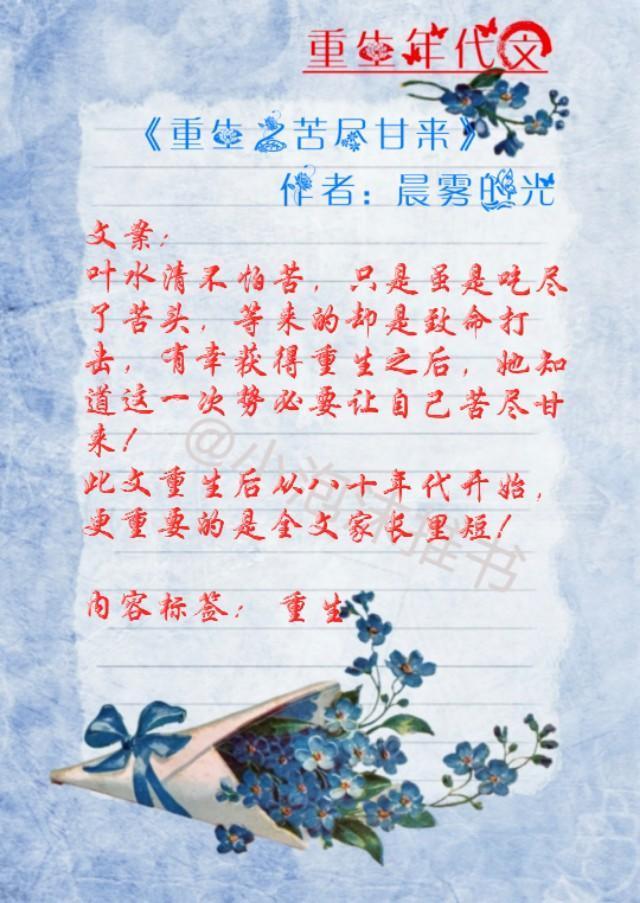 重生年代文
《重生之苦尽甘来》
作者：晨雾的光
文案：
叶水清不怕苦，只是虽是吃尽
了苦头，等来的却是致命打
击，有幸获得重生之后，她知
道这一次势必要让自己苦尽甘
来！
此文重生后从八十年代开始，
更重要的是全文家长里短！
内容标签： 重生
@小泡沫推书